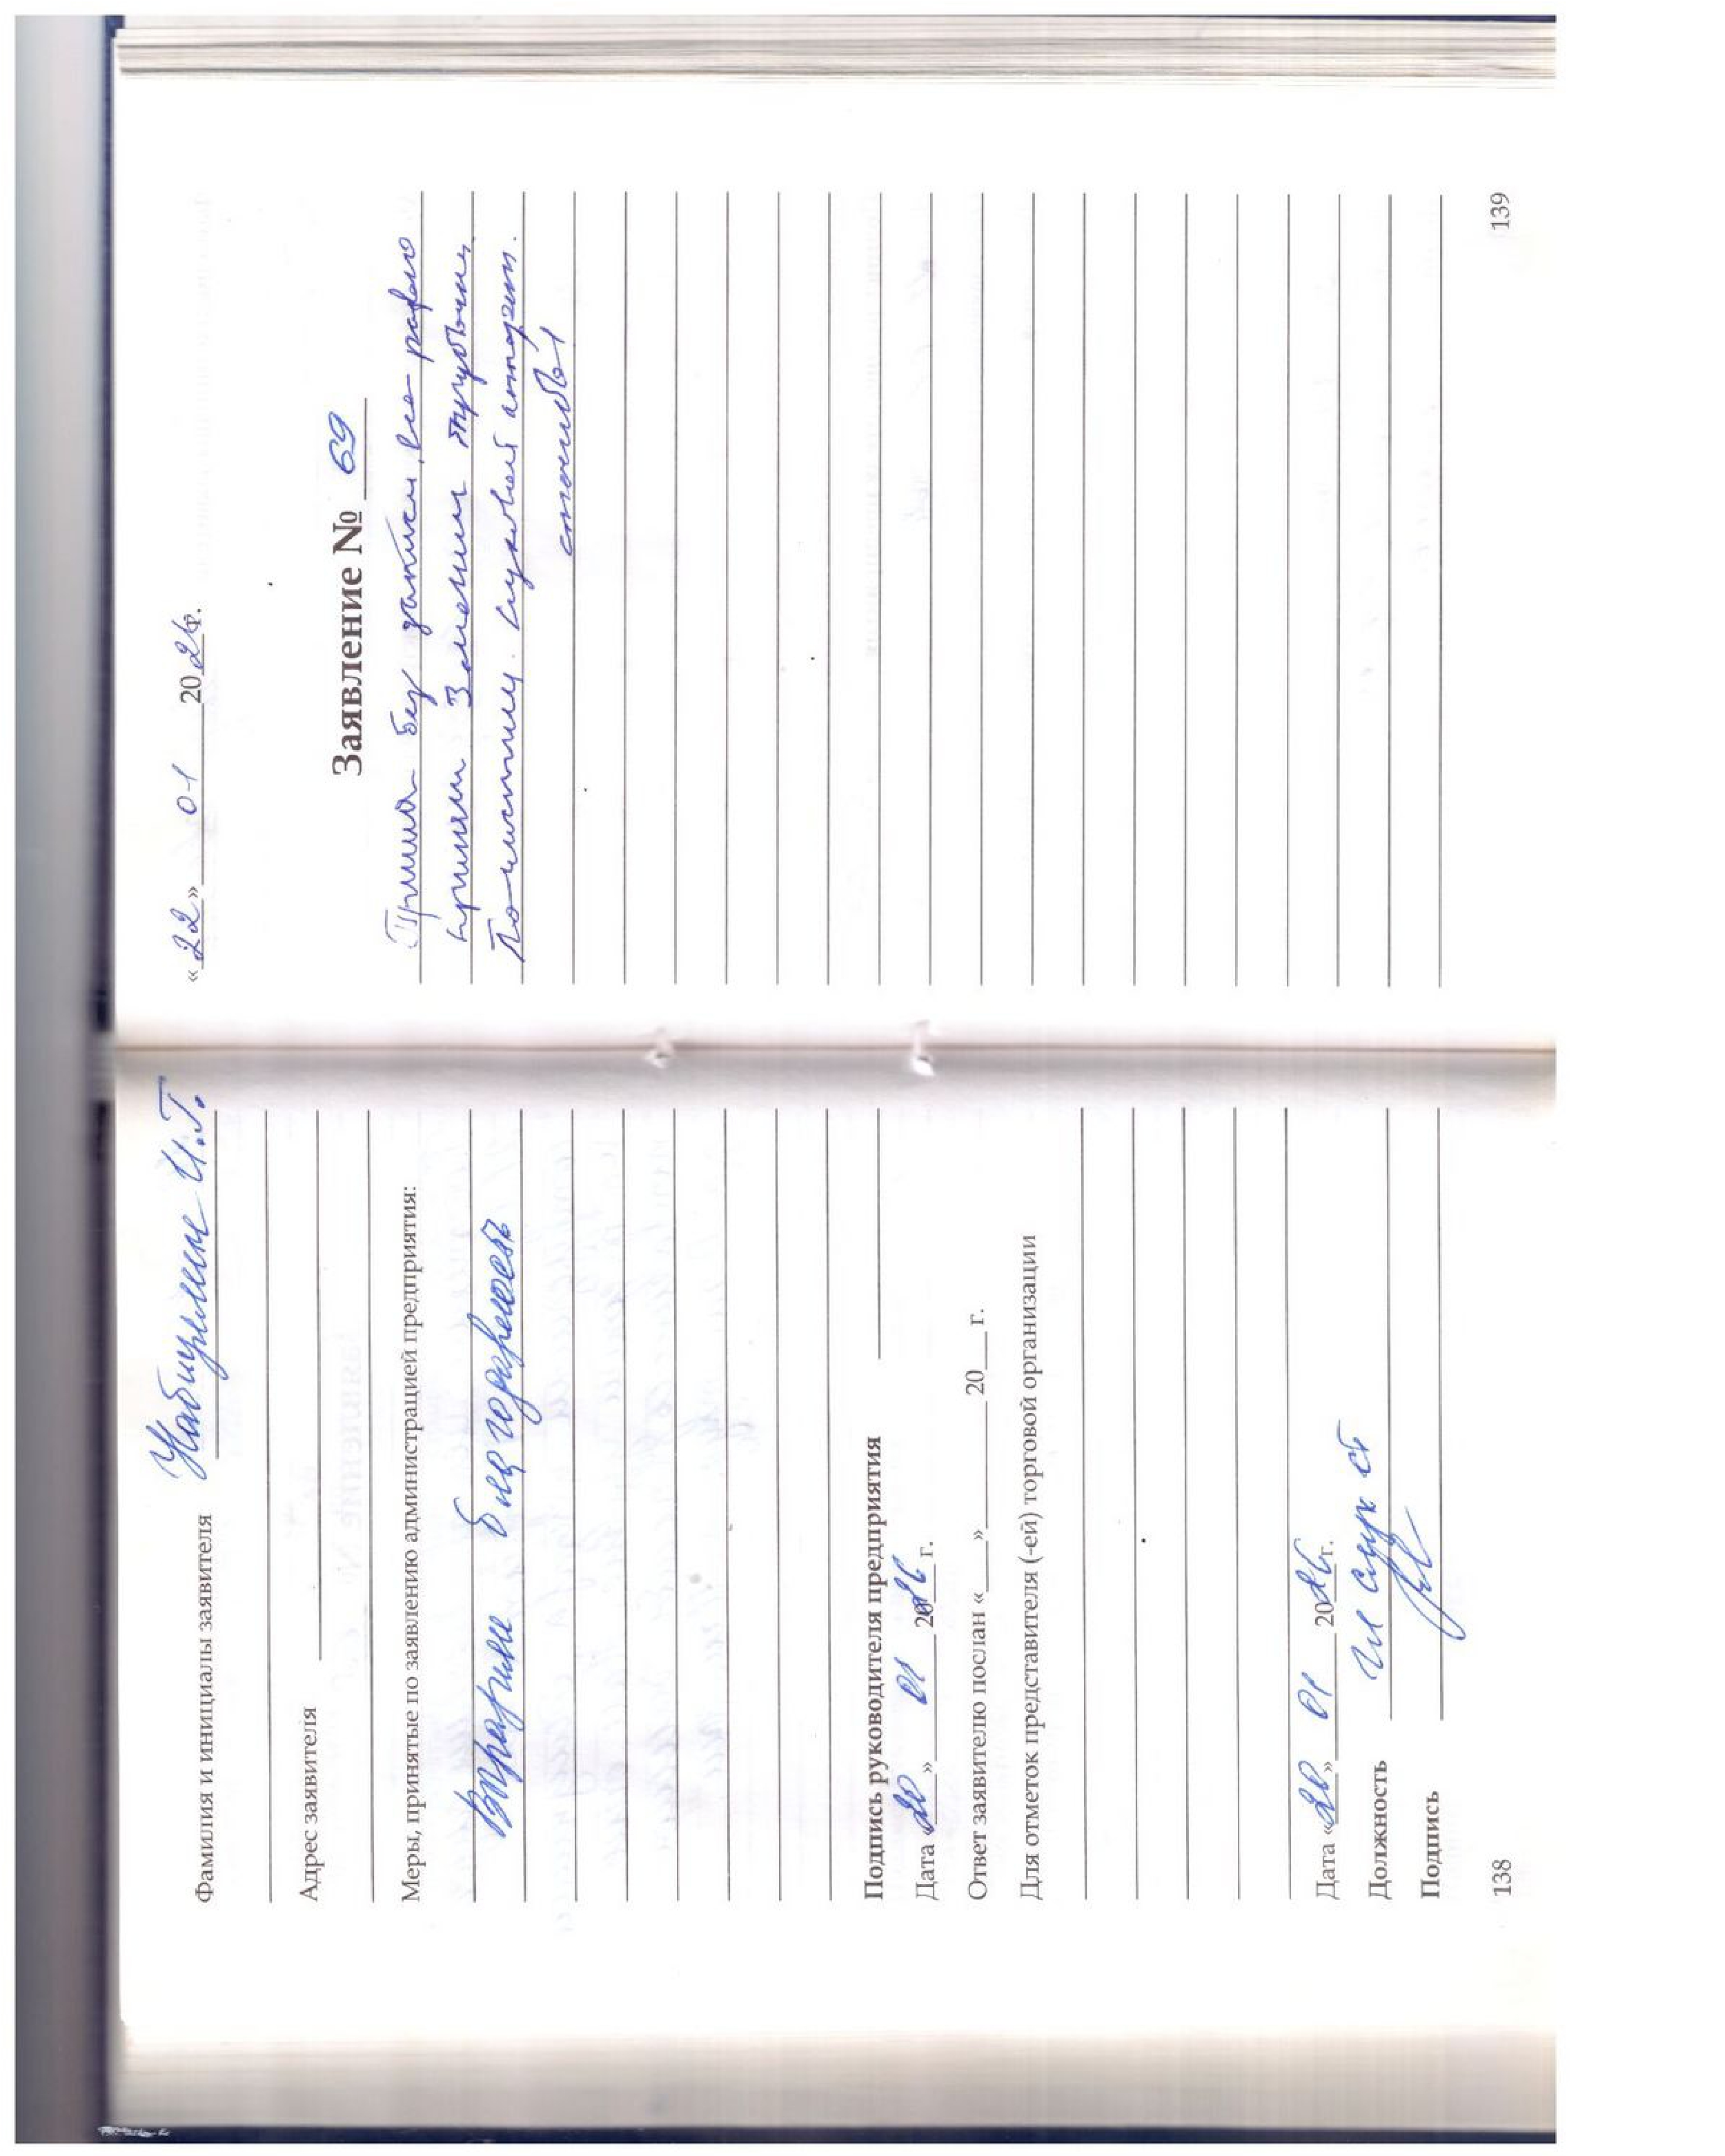 Фамилия и инициалы заявителя Набиуллин И.Г.
Адрес заявителя
Меры, принятые по заявлению администрацией предприятия:
благодарность
Подпись руководителя предприятия
Дата «20» 01 2026 г.
Ответ заявителю послан «___»________ 20___ г.
Для отметок представителя (-ей) торговой организации
Дата «20» 01 2026 г.
Должность
Подпись
138
«22» 01 2026 г.
Заявление № 69
Пришла без записи, все равно
приняли. Заменили трубочки,
Почистили. Слуховой аппарат.
139